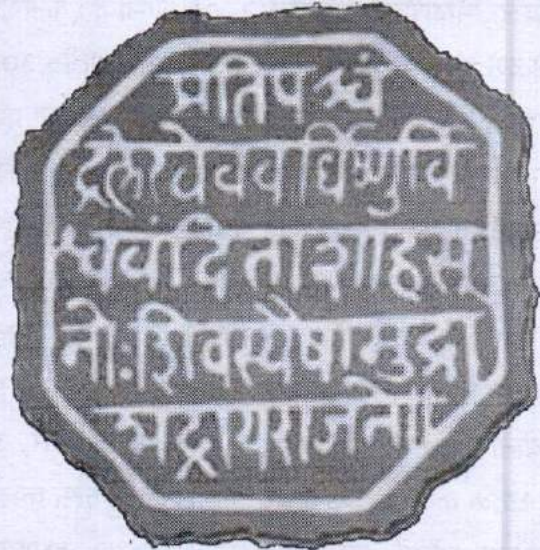 प्रतिपच्चं
द्रलेखेववर्धिष्णुर्वि
श्ववंदिताशाहसू
नोःशिवस्यैषामुद्रा
भद्रायराजते॥